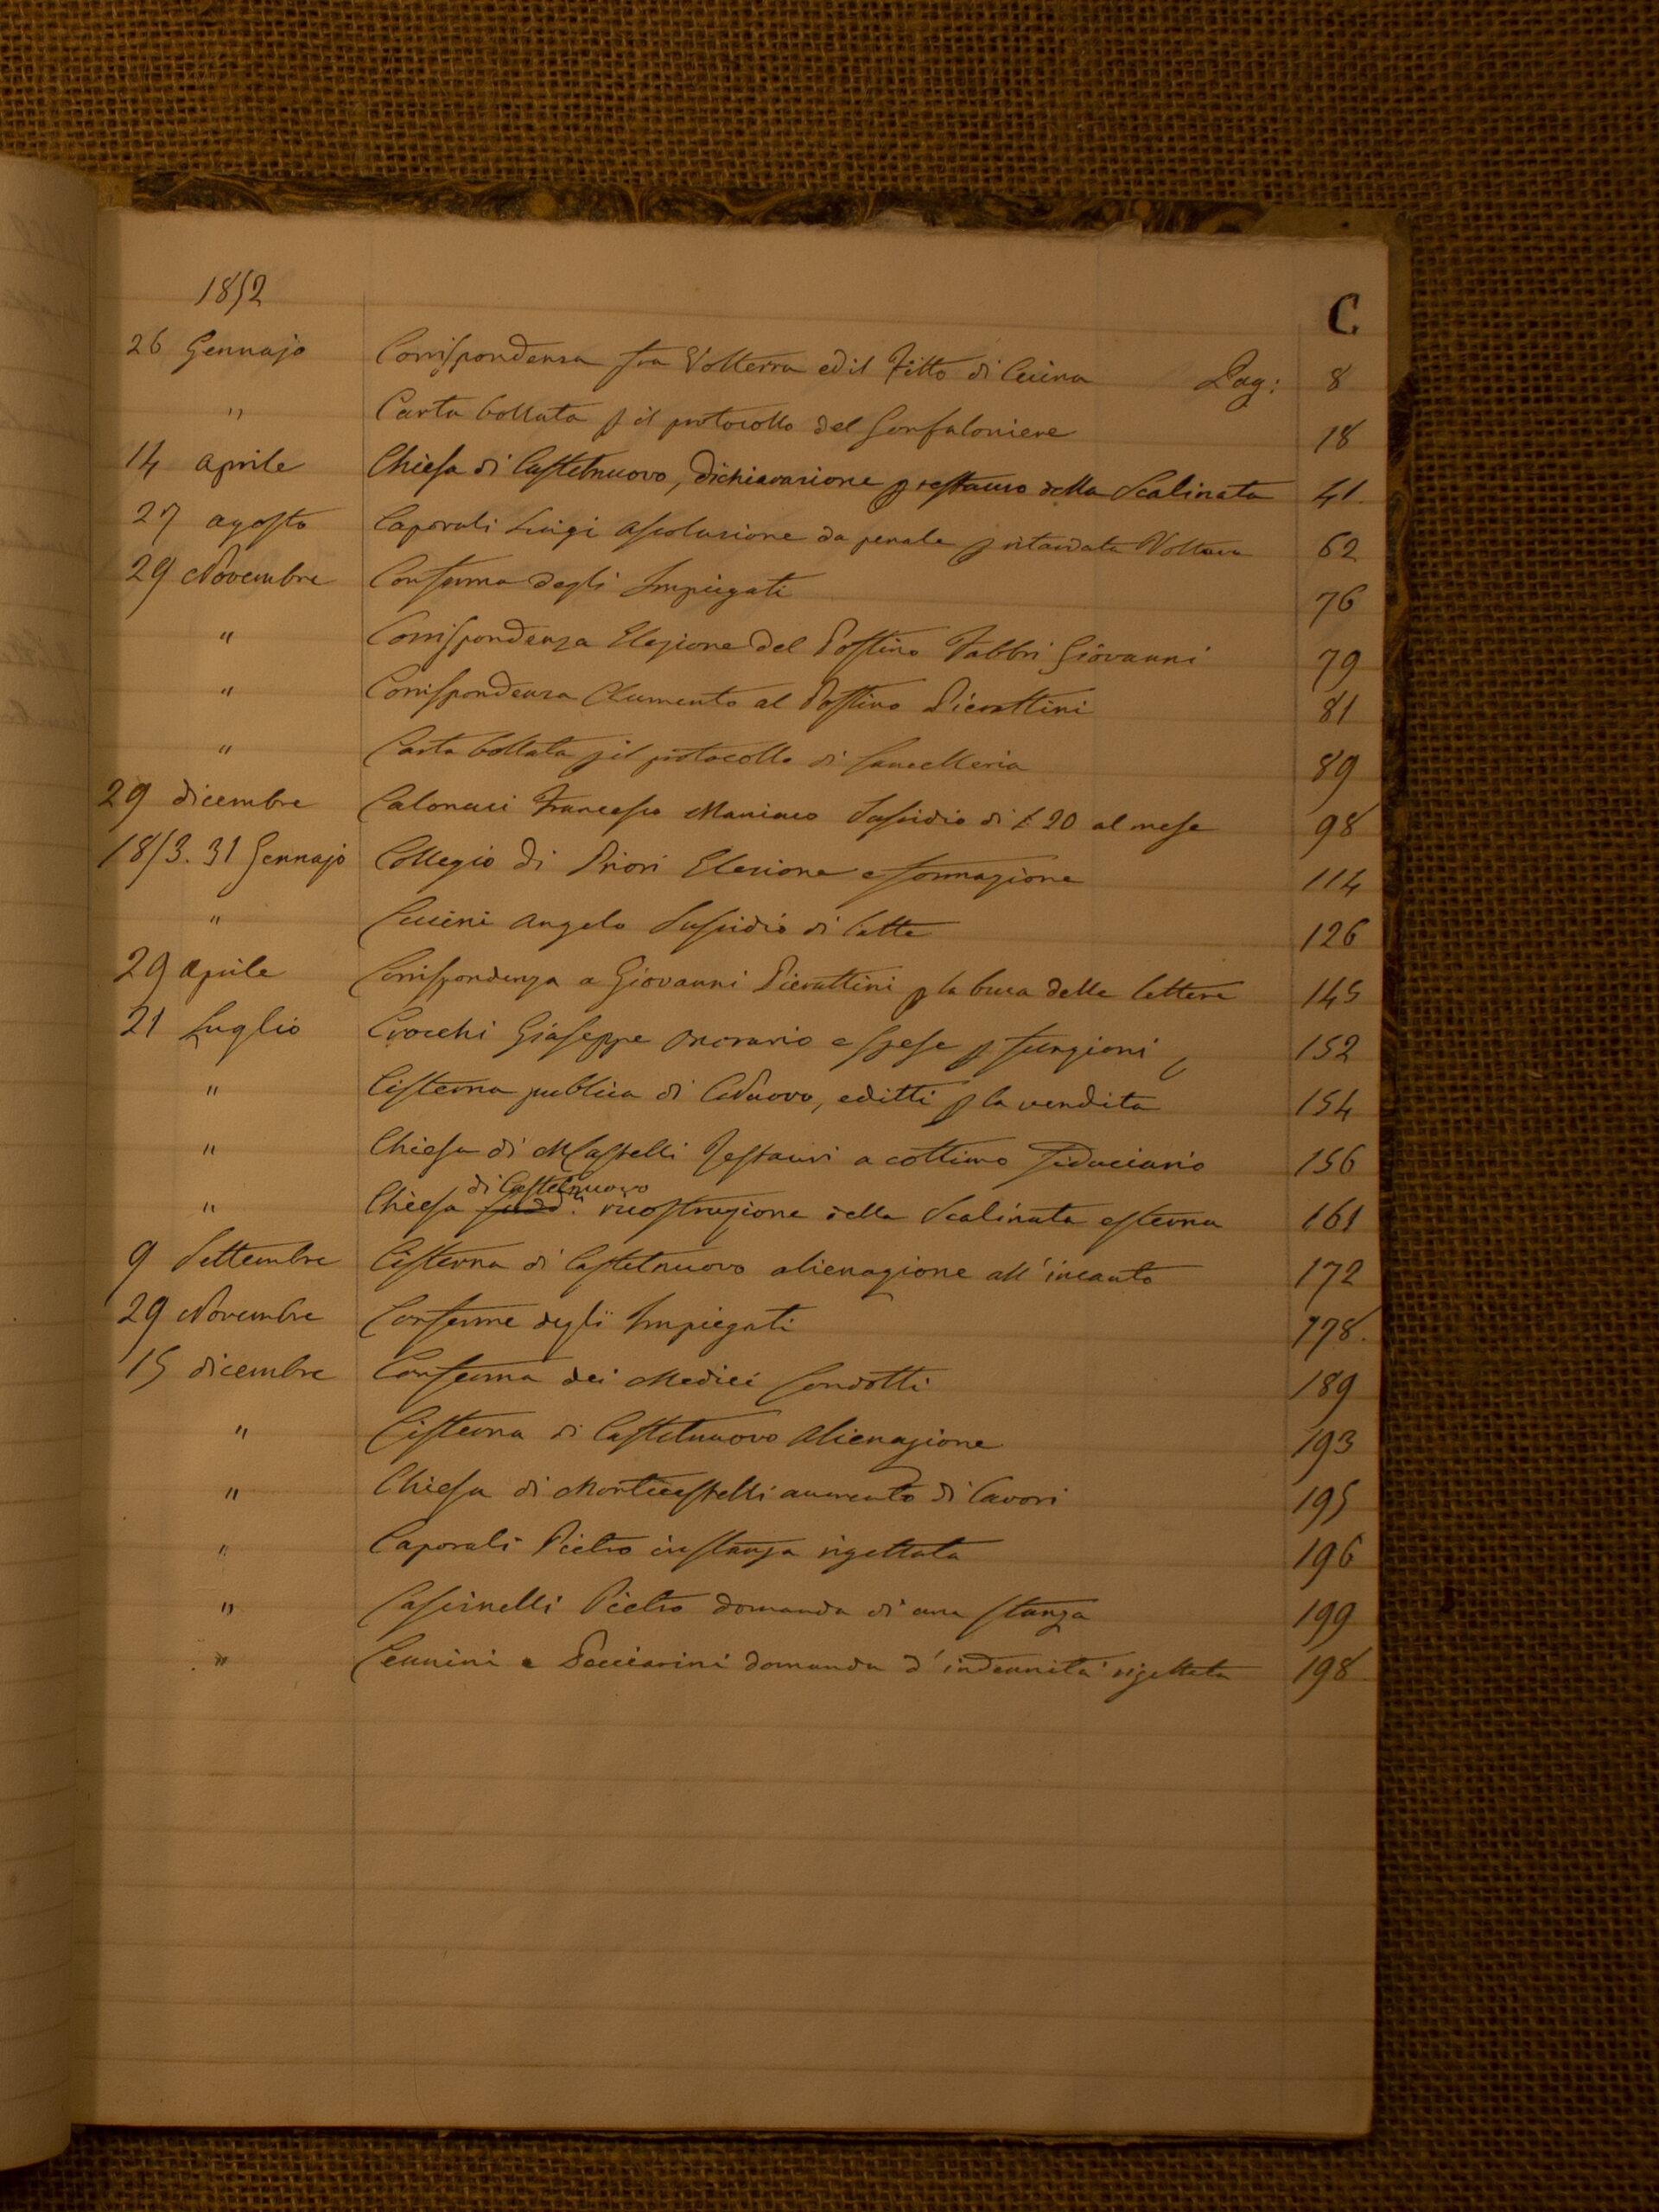 1852
C
26 Gennajo Corrispondenza fra Volterra ed il Fitto di Cecina Pag: 8
" Carta bollata p il protocollo del Gonfaloniere 18
14 Aprile Chiesa di Castelnuovo, dichiarazione p restauro della Scalinata 41.
27 Agosto Caporali Luigi assoluzione da penale p ritardata Voltura 62
29 Novembre Conferma degli Impiegati 76
" Corrispondenza Elezione del Postino Fabbri Giovanni 79
" Corrispondenza Aumento al Postino Pierattini 81
" Carta bollata p il protocollo di Cancelleria 89
29 dicembre Calonaci Francesco Maniaco Sussidio di £ 20 al mese 98
1853. 31 Gennajo Collegio di Priori Elezione e formazione 114
" Cucini Angelo Sussidio di latte 126
29 Aprile Corrispondenza a Giovanni Pierattini p la buca delle lettere 145
21 Luglio Crocchi Giuseppe onorario e spese p funzioni 152
" Cisterna publica di CNuovo, editti p la vendita 154
" Chiesa di MCastelli Restauri a cottimo fiduciario 156
di Castelnuovo
" Chiesa ricostruzione della Scalinata esterna 161
9 Settembre Cisterna di Castelnuovo alienazione all'incanto 172
29 Novembre Conferme degli Impiegati 178.
15 dicembre Conferma dei Medici Condotti 189
" Cisterna di Castelnuovo Alienazione 193
" Chiesa di Montecastelli aumento di lavori 195
" Caporali Pietro instanza rigettata 196
" Cascinelli Pietro domanda di una stanza 199
" Cennini e Pecciarini domanda d'indennità rigettata 198